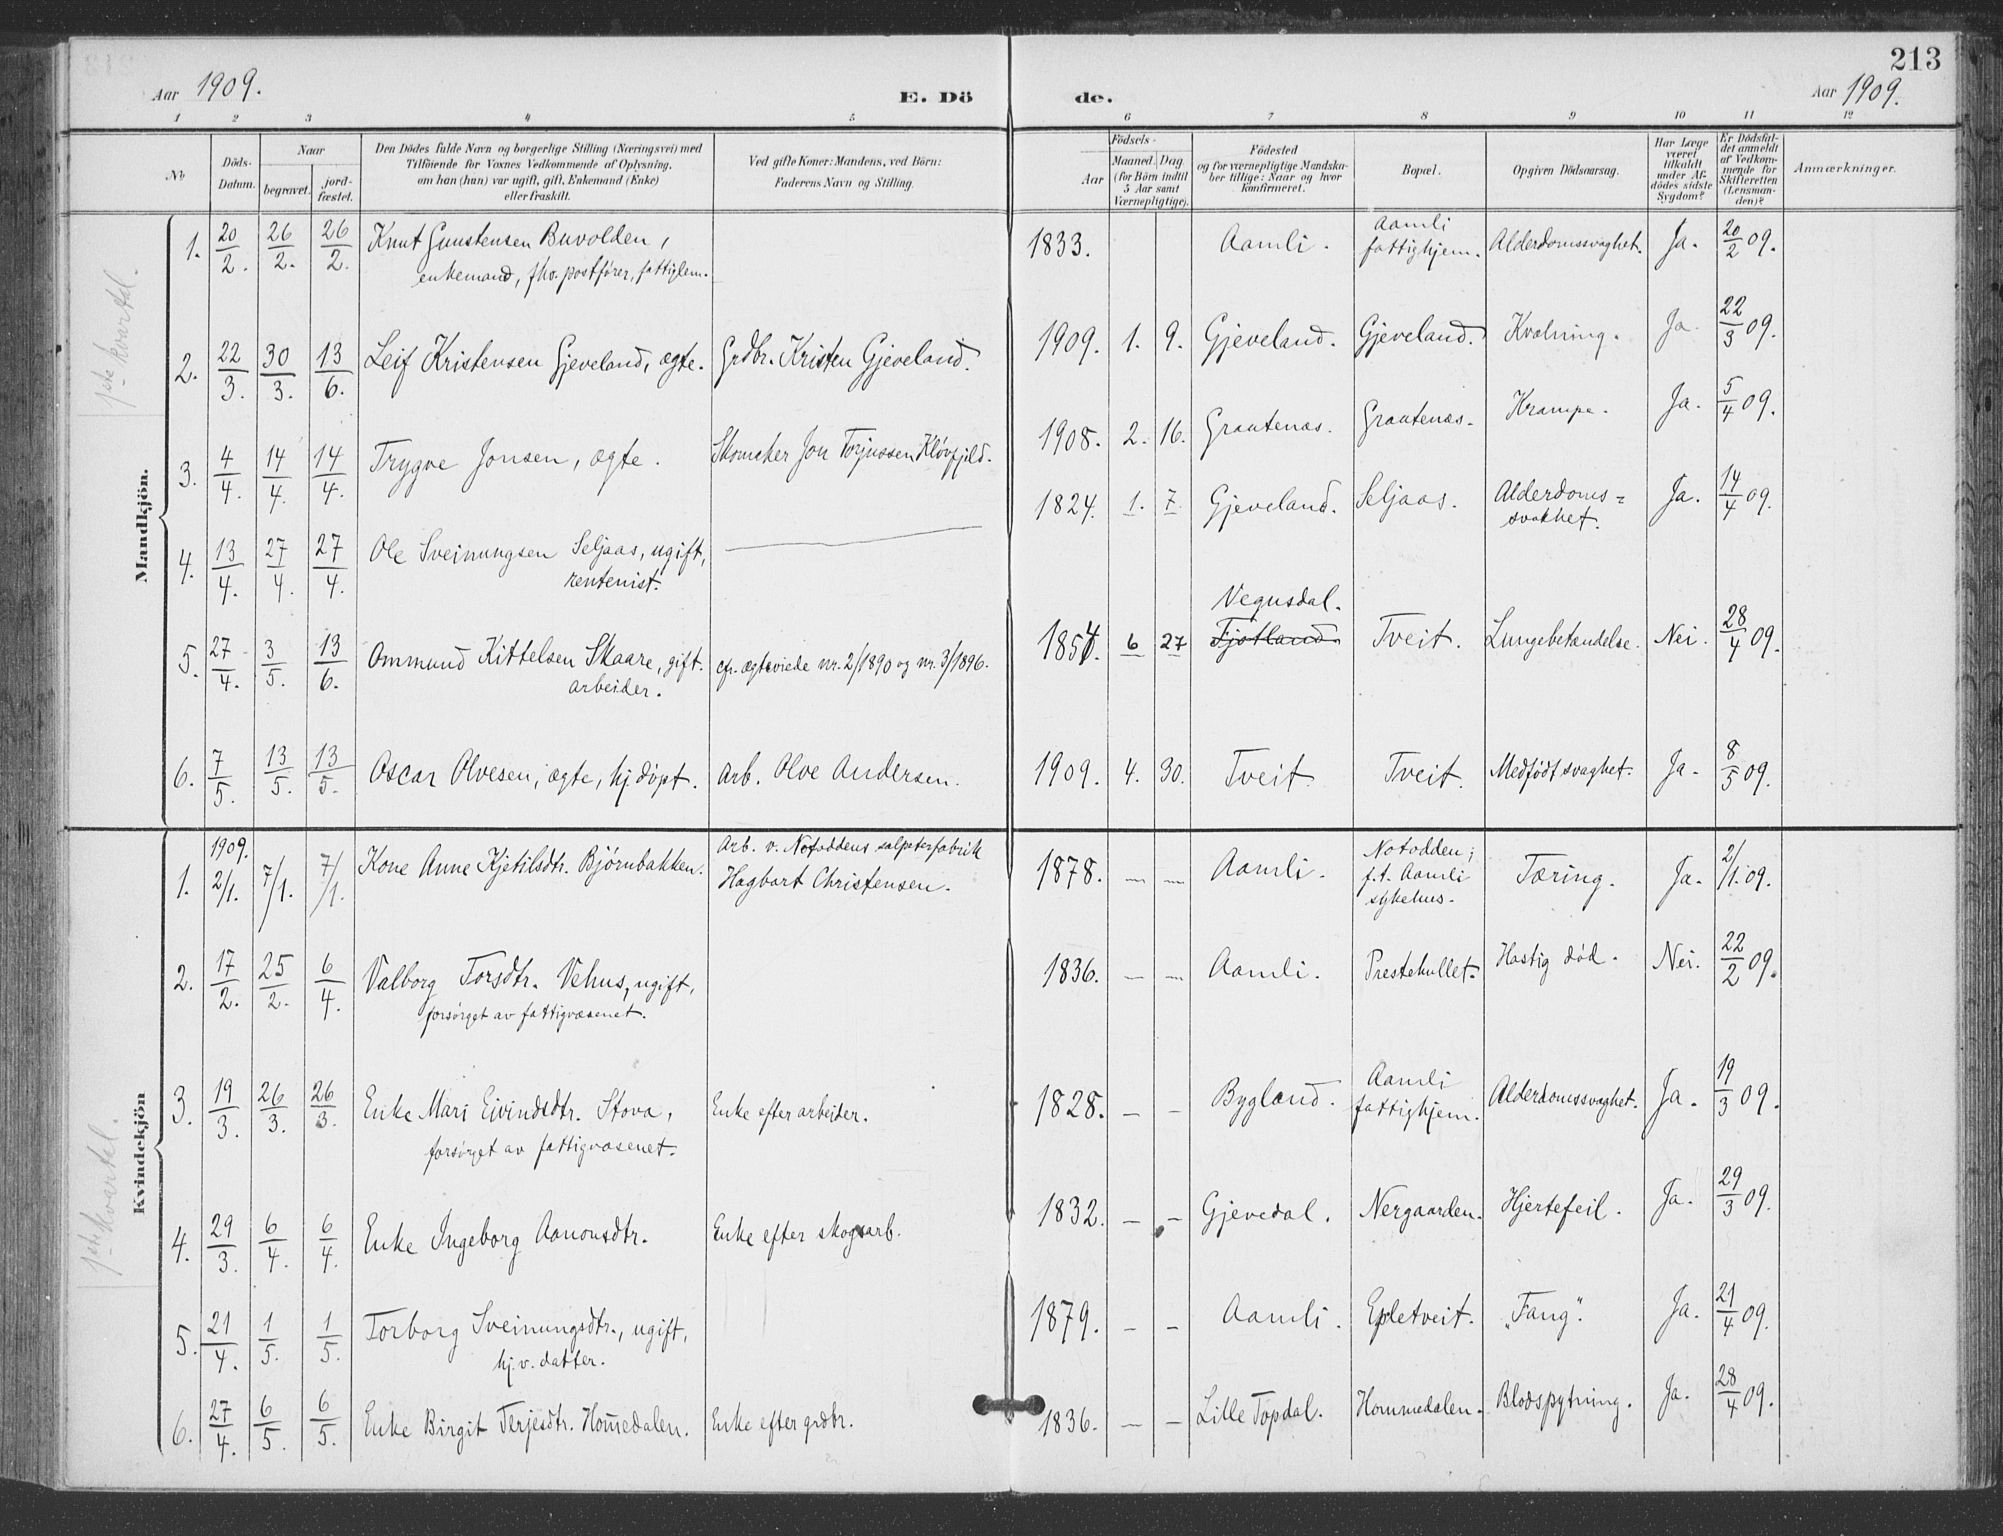 213
Aar 1909.
E. Döde.
Aar 1909.
1 2 3 4 5 6 7 8 9 10 11 12
No
Döds-Datum.
Naar
begravet.
jord-fæstet.
Den Dödes fulde Navn og borgerlige Stilling (Næringsvei) med
Tilföiende for Voxnes Vedkommende af Oplysning,
om han (hun) var ugift, gift, Enkemand (Enke)
eller fraskilt.
Ved gifte Koner: Mandens, ved Börn:
Faderens Navn og Stilling.
Födsels-
Aar
Maaned. Dag
(for Börn indtil
5 Aar samt
Værnepligtige).
Födested
og for værnepligtige Mandska-
ber tillige: Naar og hvor
konfirmeret.
Bopæl.
Opgiven Dödsaarsag.
Har Læge
været
tilkaldt
under Af-
dödes sidste
Sygdom?
Er Dödsfal-
det anmeldt
af Vedkom-
mende for
Skifteretten
(Lensman-
den)?
Anmærkninger.
Mandkjön.
1ste kvartal.
1. 20/2. 26/2. 26/2. Knut Gunstensen Buvolden, 1833. Aamli. Aamli fattighjem. Alderdomssvaghet. Ja. 20/2 09.
enkemand, fhv. postfører, fattiglem.
2. 22/3. 30/3. 13/6. Leif Kristensen Gjeveland, ægte. Grdbr. Kristen Gjeveland. 1909. 1. 9. Gjeveland. Gjeveland. Kvælning. Ja. 22/3 09.
3. 4/4. 14/4. 14/4. Trygve Jonsen, ægte. Skomaker Jon Torjussen Kløvfjild. 1908. 2. 16. Grautenæs. Grautenæs. Krampe. Ja. 5/4 09.
4. 13/4. 27/4. 27/4. Ole Sveinungsen Seljaas, ugift, 1824. 1. 7. Gjeveland. Seljaas. Alderdoms=svakhet. Ja. 14/4 09.
rentenist.
5. 27/4. 3/5. 13/6. Ommund Kittelsen Skaare, gift. cfr. ægteviede nr. 2/1890 og nr. 3/1896. 1854. 6 27 Vegusdal. Fjotland. Tveit. Lungebetændelse. Nei. 28/4 09.
arbeider.
6. 7/5. 13/5. 13/5. Oscar Olvesen, ægte, hj.døpt. Arb. Olve Andersen. 1909. 4. 30. Tveit. Tveit. Medfødt svaghet. Ja. 8/5 09.
Kvindekjön
1ste kvartal.
1. 1909. 2/1. 7/1. 7/1. Kone Anne Kjetilsdtr. Bjørnbakken. Arb. v. Notoddens salpeterfabrik Hagbart Christensen. 1878. — — Aamli. Notodden; f.t. Aamli sykehus. Tæring. Ja. 2/1. 09.
2. 17/2. 25/2. 6/4. Valborg Torsdtr. Vehus, ugift, 1836. — — Aamli. Prestehullet. Hastig død. Nei. 22/2 09.
forsørget av fattigvæsenet.
3. 19/3. 26/3. 26/3. Enke Mari Eivindsdtr. Stova, Enke efter arbeider. 1828. — — Bygland. Aamli fattighjem. Alderdomssvaghet. Ja. 19/3 09.
forsørget av fattigvæsenet.
4. 29/3. 6/4. 6/4. Enke Ingeborg Aanonsdtr. Enke efter skogsarb. 1832. — — Gjevedal. Nergaarden. Hjertefeil. Ja. 29/3 09.
5. 21/4. 1/5. 1/5. Torborg Sveinungsdtr., ugift, 1879. — — Aamli. Epletveit. „Tang". Ja. 21/4 09.
hj.v. datter.
6. 27/4. 6/5. 6/5. Enke Birgit Terjesdtr. Hom̄edalen. Enke efter grdbr. 1836. — — Lille Topdal. Hommedalen. Blodspytning. Ja. 28/4 09.